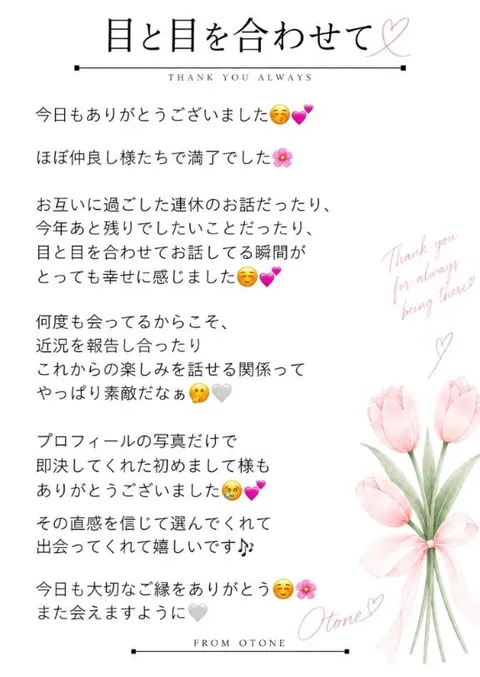 目と目を合わせて
THANK YOU ALWAYS
今日もありがとうございました☺️💕
ほぼ仲良し様たちで満了でした🌸
お互いに過ごした連休のお話だったり、
今年あと残りでしたいことだったり、
目と目を合わせてお話してる瞬間が
とっても幸せに感じました☺️💕
何度も会ってるからこそ、
近況を報告し合ったり
これからの楽しみを話せる関係って
やっぱり素敵だなぁ🤭🩶
Thank you
for always
being there♡
プロフィールの写真だけで
即決してくれた初めまして様も
ありがとうございました🥲💕
その直感を信じて選んでくれて
出会ってくれて嬉しいです🎶
今日も大切なご縁をありがとう☺️🌸
また会えますように🩶
Otone♡
FROM OTONE